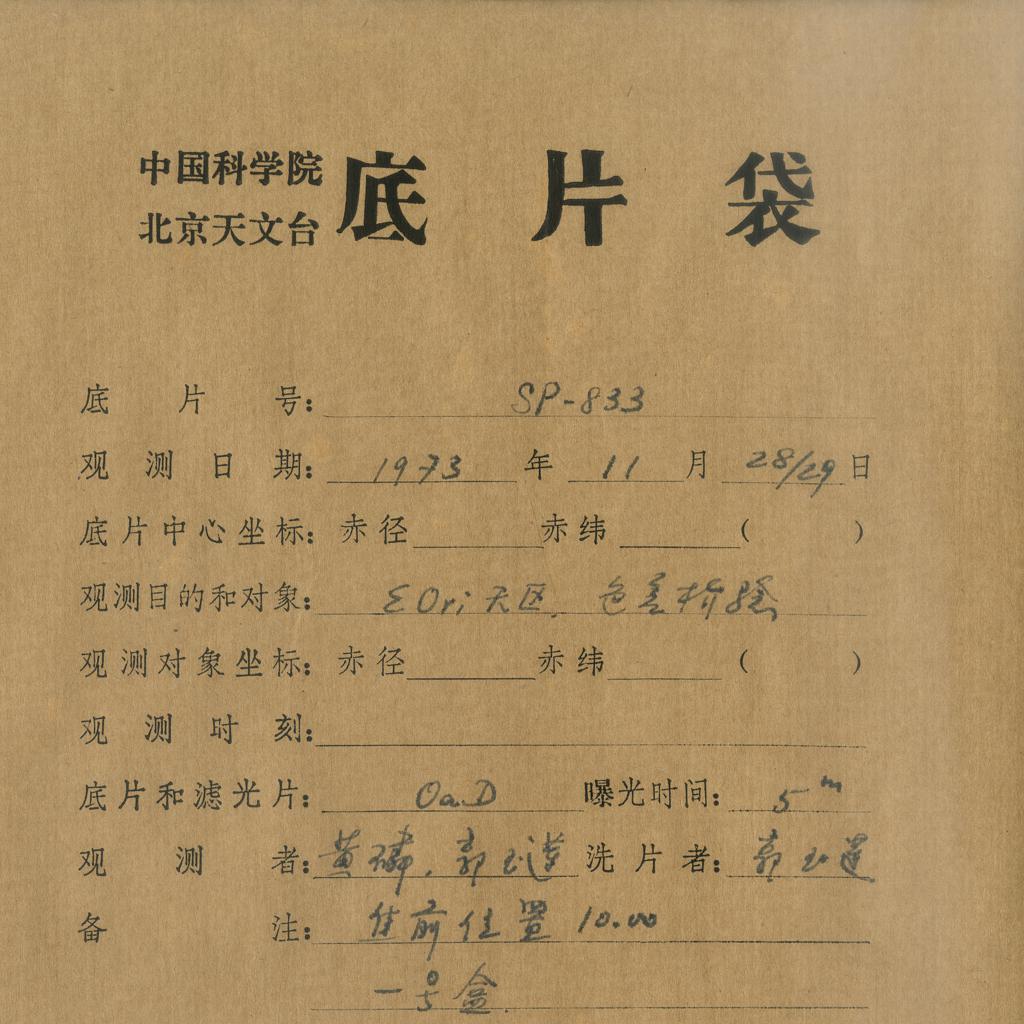 中国科学院
北京天文台
底片袋
底片号: SP-833
观测日期: 1973 年 11 月 28/29 日
底片中心坐标: 赤径 赤纬 ( )
观测目的和对象: εOri天区, 色差检验
观测对象坐标: 赤径 赤纬 ( )
观测时刻:
底片和滤光片: OaD 曝光时间: 5m
观测者: 黄磷, 郭玉莲 洗片者: 郭玉莲
备注: 焦前位置 10.00
一号盒.